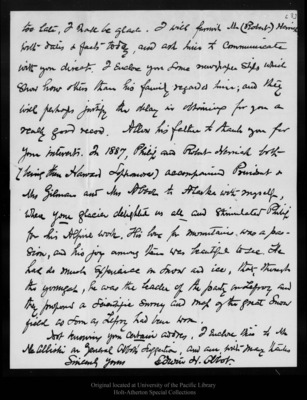 too late, I shall be glad. I will furnish Mr (Robert)
both dates & facts to-day, and ask him to communicate
with you direct. I enclose you some newspaper slips which
show how others than his family regarded him; and they
will perhaps justify the delay in obtaining for you a
really good record. Allow his father to thank you for
your interest. In 1887, Philip and Robert both
(being then Harvard Sophomores) accompanied President &
Mrs Gilman and Mrs Abbot to Alaska with myself,
when your glacier delighted us all and stimulated Philip
for his Alpine work. His love for mountains was a pas-
sion, and his joy among them was beautiful to see. He
had so much experience in snow and ice, that though
the youngest, he was the leader of the party on Lefroy and
they proposed a scientific survey and map of the great snow
field as soon as Lefroy had been won.
Not knowing you address, I enclose this to Mr
McAllister on General suggestion, and am with many thanks
Sincerely yours Edwin H. Abbot.
Original located at University of the Pacific Library
Holt-Atherton Special Collections